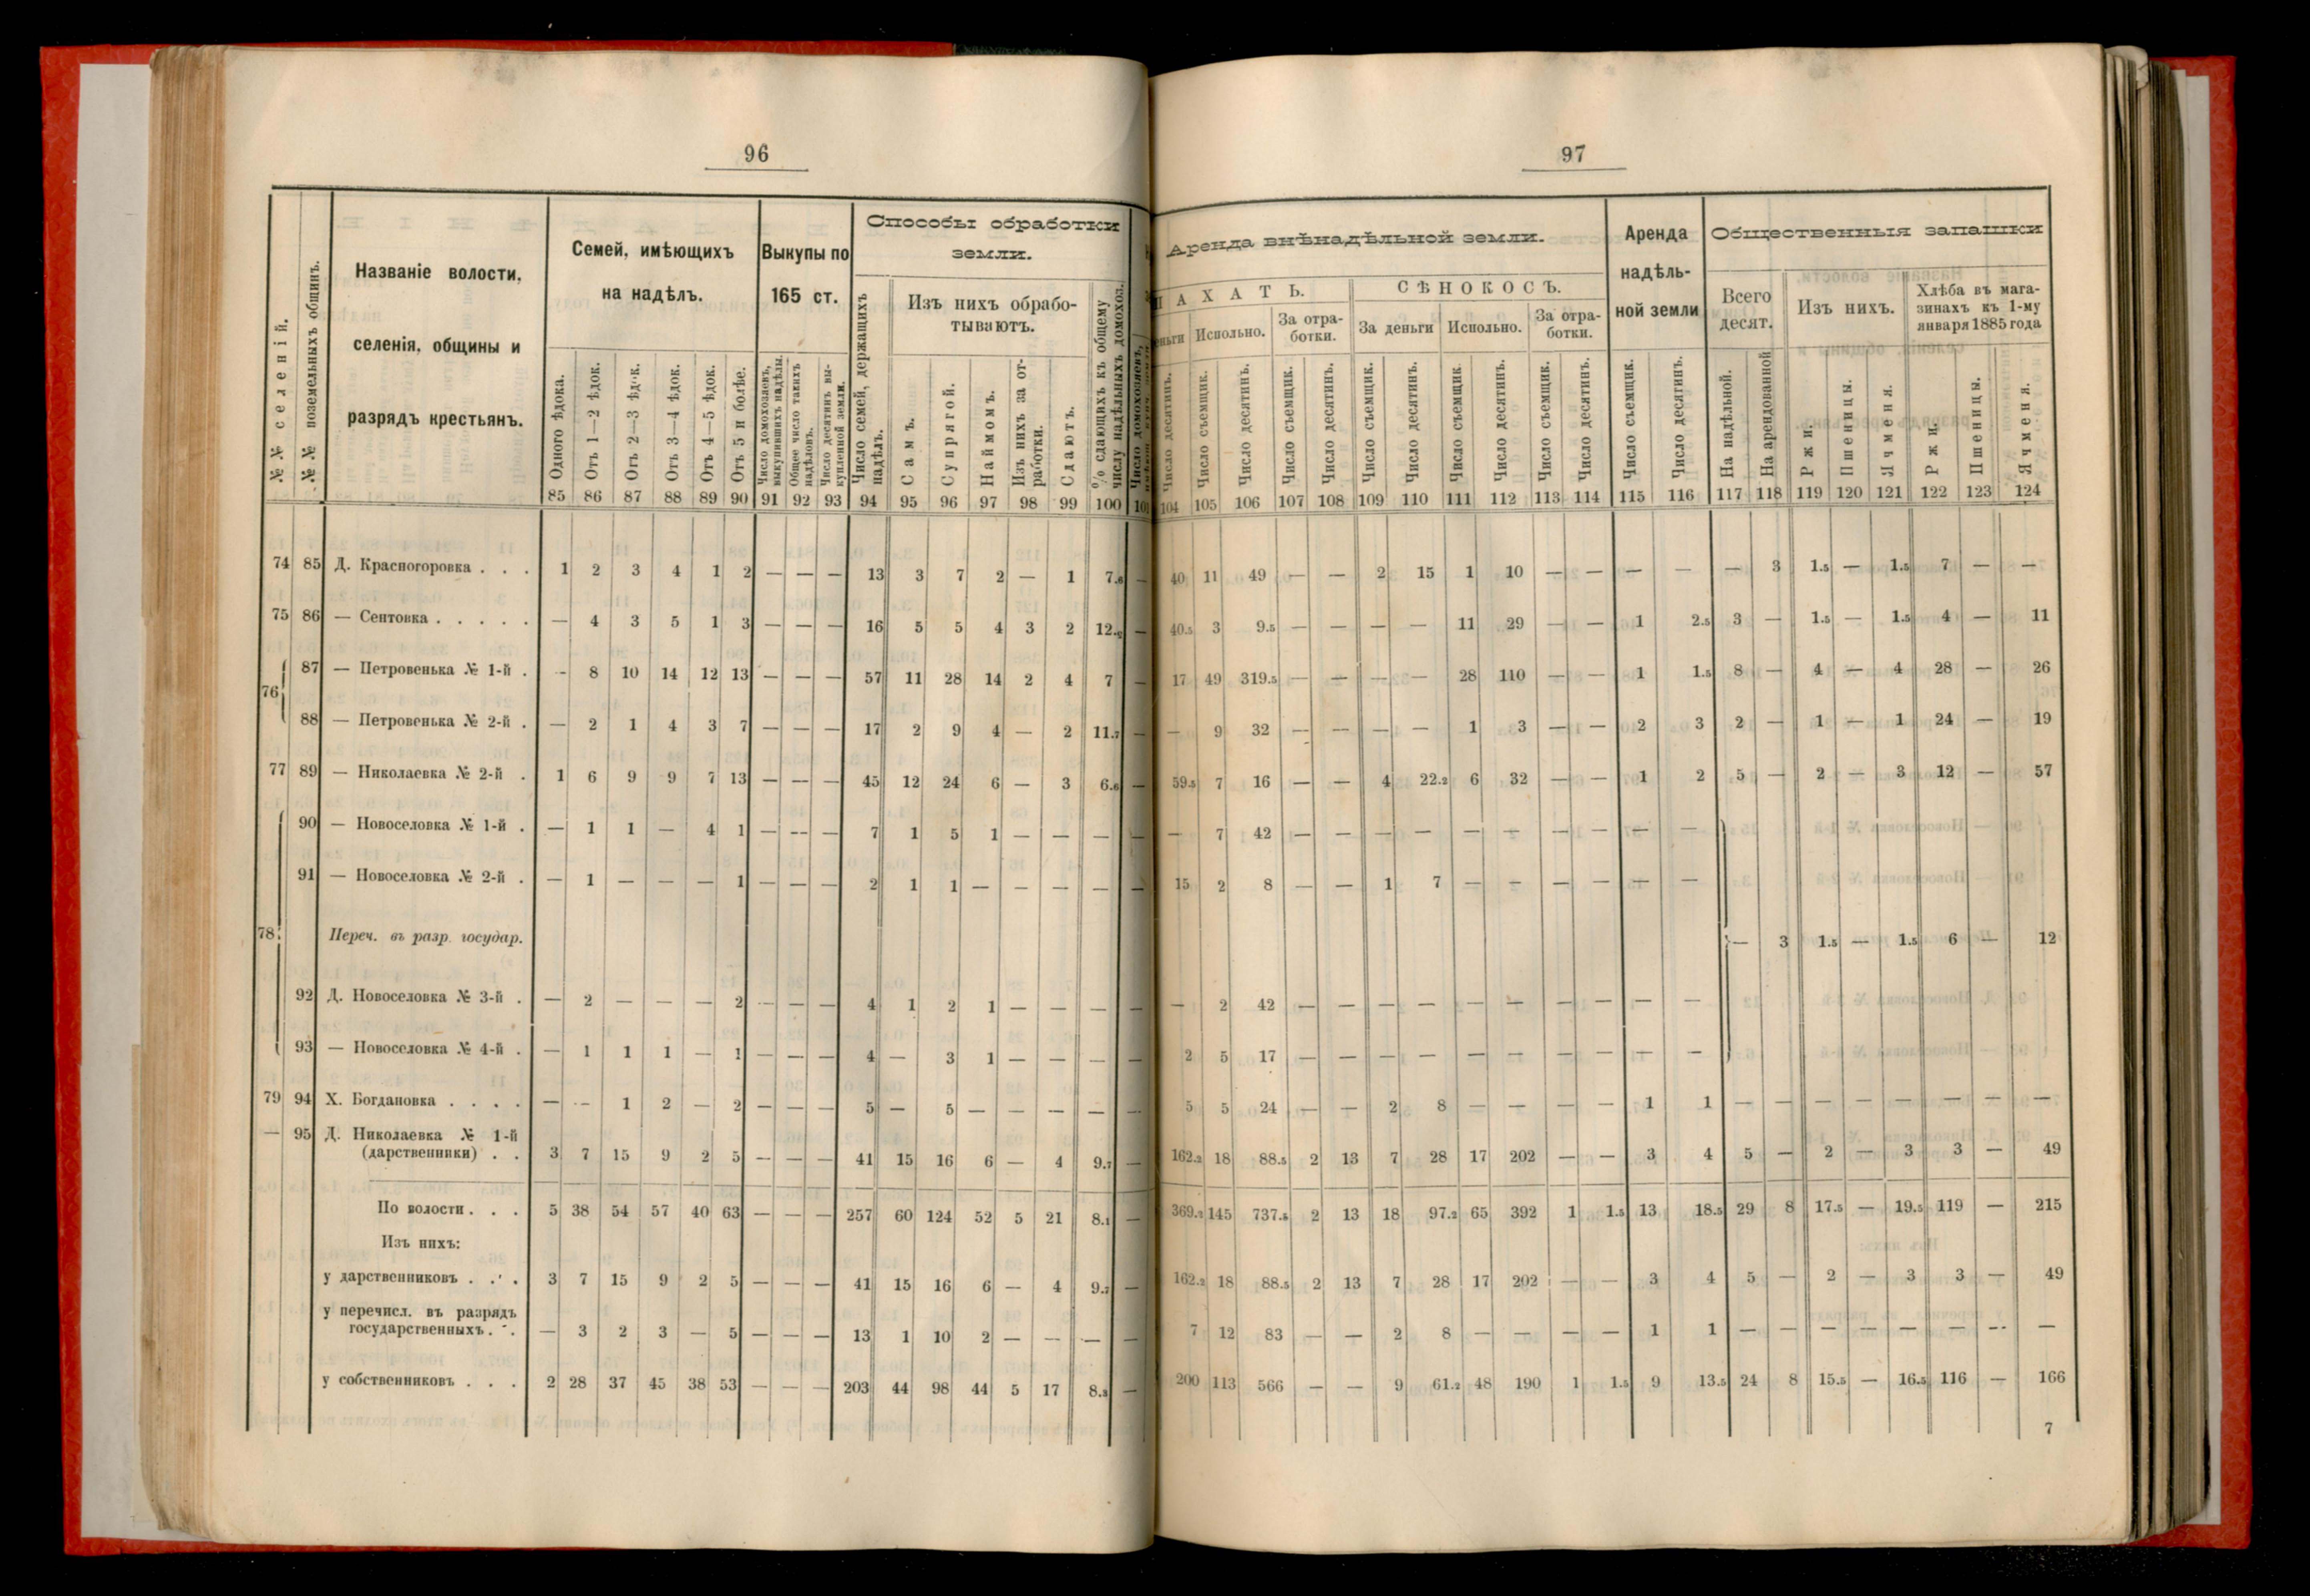 96
№№ селеній.
№№ поземельныхъ общинъ.
Названіе волости,
селенія, общины и
разрядъ крестьянъ.
Семей, имѣющихъ
на надѣлъ.
Одного ѣдока.
Отъ 1—2 ѣдок.
Отъ 2—3 ѣдок.
Отъ 3—4 ѣдок.
Отъ 4—5 ѣдок.
Отъ 5 и болѣе.
Выкупы по
165 ст.
Число домохозяевъ,
выкупившихъ надѣлы.
Общее число такихъ
надѣловъ.
Число десятинъ вы-
купленной земли.
Способы обработки
земли.
Число семей, держащихъ
надѣлъ.
Изъ нихъ обрабо-
тываютъ.
Самъ.
Супрягой.
Наймомъ.
Изъ нихъ за от-
работки.
Сдаютъ.
% сдающихъ къ общему
числу надѣльныхъ домохоз.
Число домохозяевъ,
85 86 87 88 89 90 91 92 93 94 95 96 97 98 99 100 101
74 85 Д. Красногоровка . . . 1 2 3 4 1 2 — — — 13 3 7 2 — 1 7.6 —
75 86 — Сентовка . . . . . — 4 3 5 1 3 — — — 16 5 5 4 3 2 12.5 —
76
87 — Петровенька № 1-й . — 8 10 14 12 13 — — — 57 11 28 14 2 4 7 —
88 — Петровенька № 2-й . — 2 1 4 3 7 — — — 17 2 9 4 — 2 11.7 —
77 89 — Николаевка № 2-й . 1 6 9 9 7 13 — — — 45 12 24 6 — 3 6.6 —
90 — Новоселовка № 1-й . — 1 1 — 4 1 — — — 7 1 5 1 — — — —
91 — Новоселовка № 2-й . — 1 — — — 1 — — — 2 1 1 — — — — —
78 Переч. въ разр. государ.
92 Д. Новоселовка № 3-й . — 2 — — — 2 — — — 4 1 2 1 — — — —
93 — Новоселовка № 4-й . — 1 1 1 — 1 — — — 4 — 3 1 — — — —
79 94 Х. Богдановка . . . . — — 1 2 — 2 — — — 5 — 5 — — — — —
— 95 Д. Николаевка № 1-й
(дарственники) . . 3 7 15 9 2 5 — — — 41 15 16 6 — 4 9.7 —
По волости . . . 5 38 54 57 40 63 — — — 257 60 124 52 5 21 8.1 —
Изъ нихъ:
у дарственниковъ . . . 3 7 15 9 2 5 — — — 41 15 16 6 — 4 9.7 —
у перечисл. въ разрядъ
государственныхъ . . — 3 2 3 — 5 — — — 13 1 10 2 — — — —
у собственниковъ . . . 2 28 37 45 38 53 — — — 203 44 98 44 5 17 8.3 —
97
Аренда внѣнадѣльной земли.
ПАХАТЬ.
СѢНОКОСЪ.
еньги
Испольно.
За отра-
ботки.
За деньги
Испольно.
За отра-
ботки.
Число десятинъ.
Число съемщик.
Число десятинъ.
Число съемщик.
Число десятинъ.
Число съемщик.
Число десятинъ.
Число съемщик.
Число десятинъ.
Число съемщик.
Число десятинъ.
Аренда
надѣль-
ной земли
Число съемщик.
Число десятинъ.
Общественныя запашки
Всего
десят.
На надѣльной.
На арендованной
Изъ нихъ.
Ржи.
Пшеницы.
Ячменя.
Хлѣба въ мага-
зинахъ къ 1-му
января 1885 года
Ржи.
Пшеницы.
Ячменя.
104 105 106 107 108 109 110 111 112 113 114 115 116 117 118 119 120 121 122 123 124
40 11 49 — — 2 15 1 10 — — — — — 3 1.5 — 1.5 7 — —
40.5 3 9.5 — — — — 11 29 — — 1 2.5 3 — 1.5 — 1.5 4 — 11
17 49 319.5 — — — — 28 110 — — 1 1.5 8 — 4 — 4 28 — 26
— 9 32 — — — — 1 3 — — 2 3 2 — 1 — 1 24 — 19
59.5 7 16 — — 4 22.2 6 32 — — 1 2 5 — 2 — 3 12 — 57
— 7 42 — — — — — — — — — —
15 2 8 — — 1 7 — — — — — —
— 3 1.5 — 1.5 6 — 12
— 2 42 — — — — — — — — — —
2 5 17 — — — — — — — — — —
5 5 24 — — 2 8 — — — — 1 1 — — — — — — — —
162.2 18 88.5 2 13 7 28 17 202 — — 3 4 5 — 2 — 3 3 — 49
369.2 145 737.5 2 13 18 97.2 65 392 1 1.5 13 18.5 29 8 17.5 — 19.5 119 — 215
162.2 18 88.5 2 13 7 28 17 202 — — 3 4 5 — 2 — 3 3 — 49
7 12 83 — — 2 8 — — — — 1 1 — — — — — — — —
200 113 566 — — 9 61.2 48 190 1 1.5 9 13.5 24 8 15.5 — 16.5 116 — 166
7